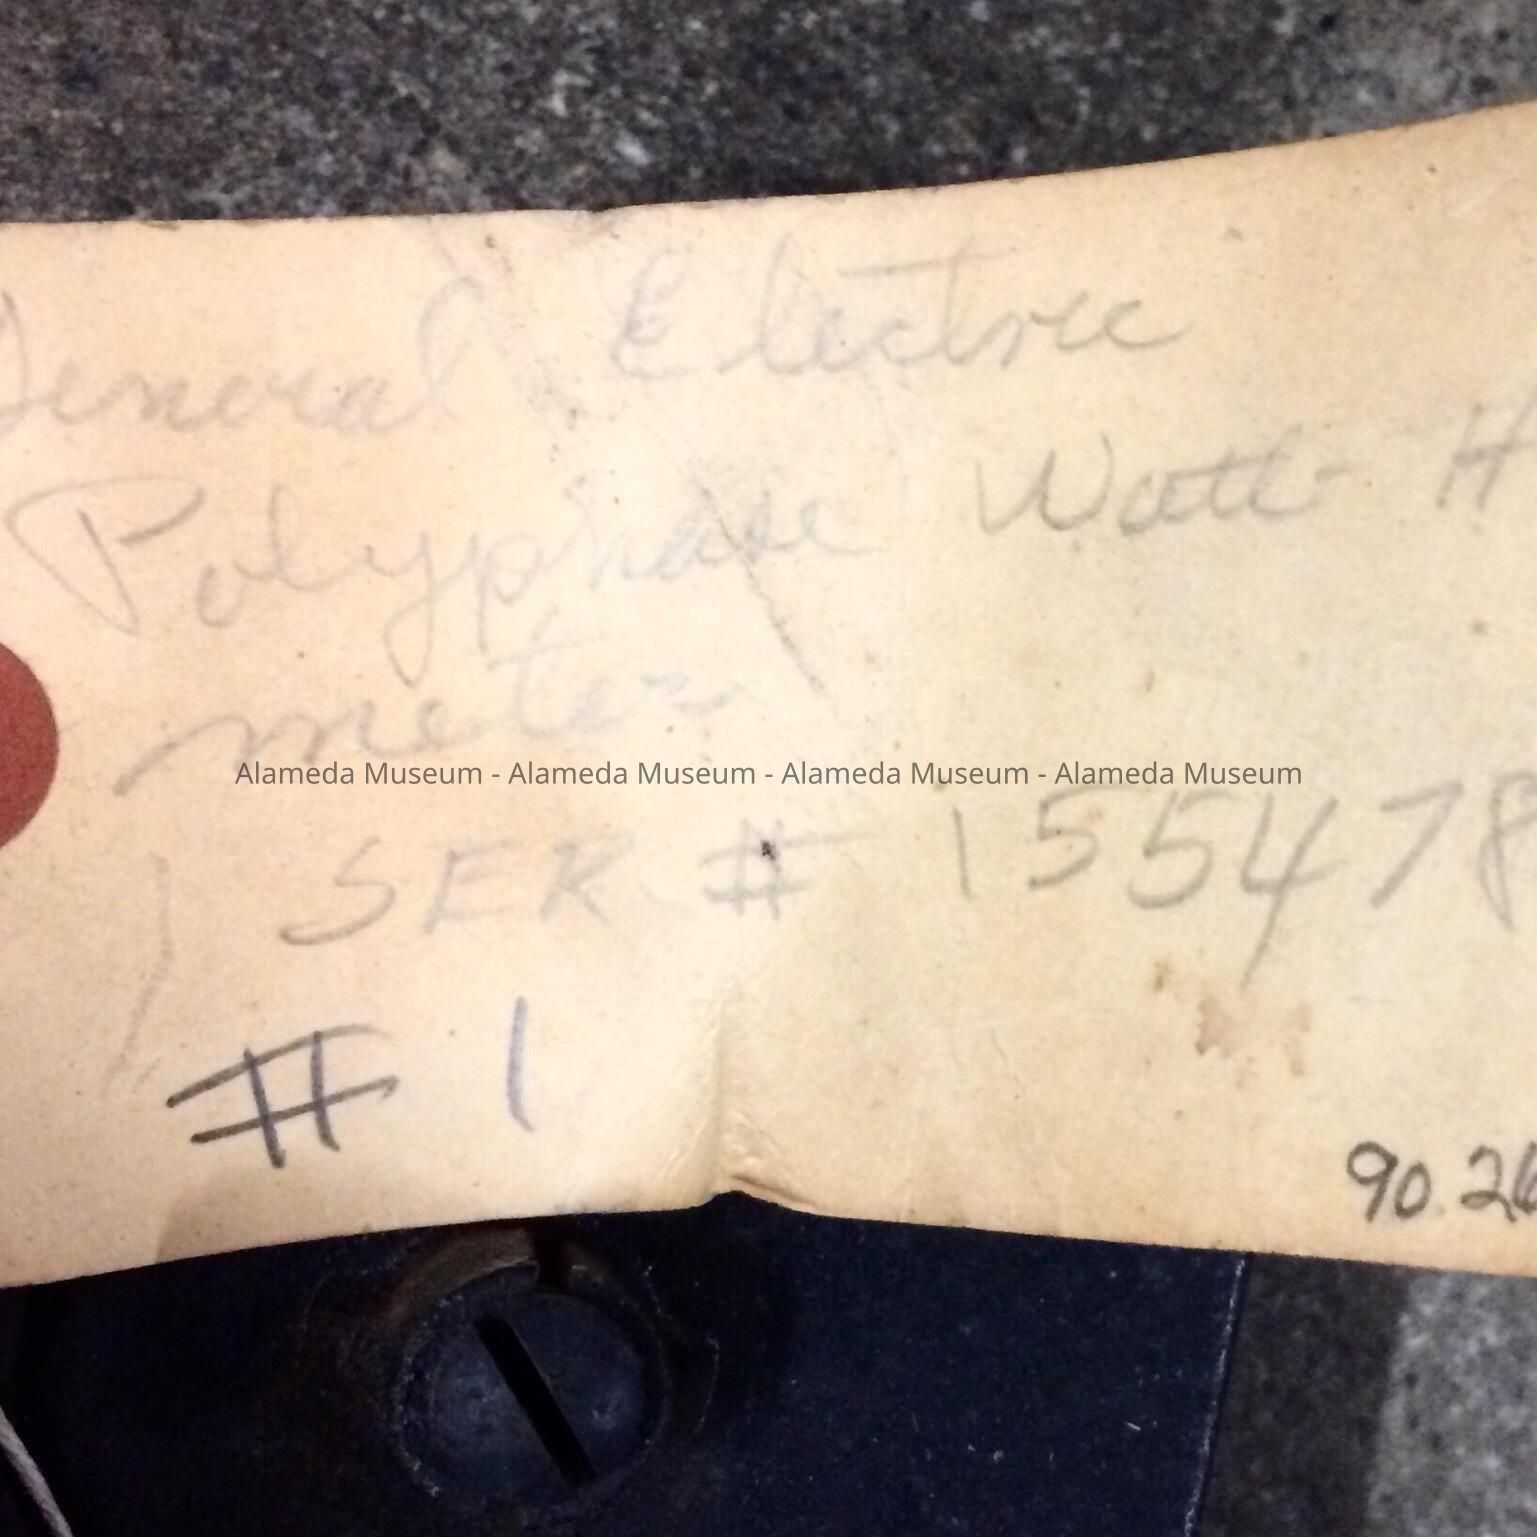 General Electric
Polyphase Watt- H
meter
Alameda Museum - Alameda Museum - Alameda Museum - Alameda Museum
SER # 155478
# 1
90.26